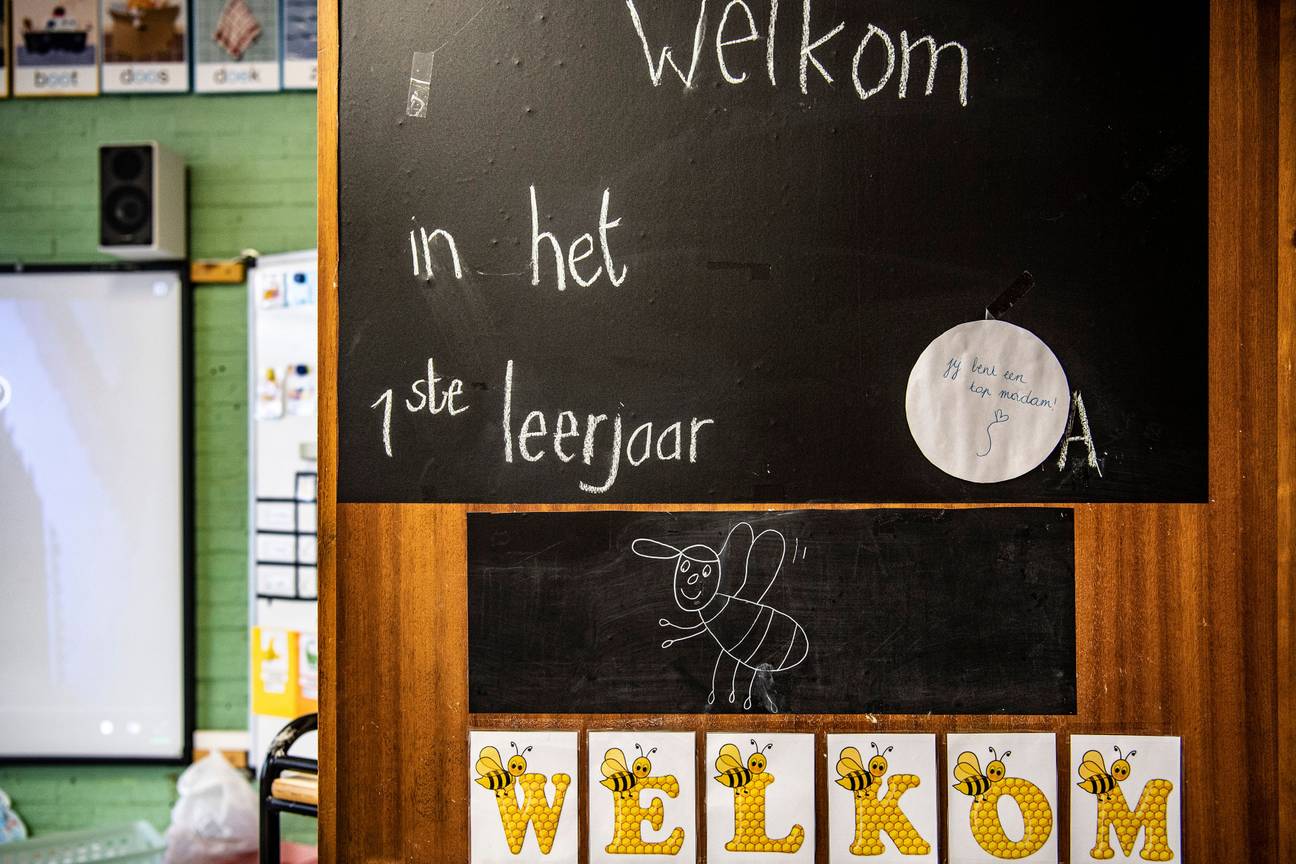 boot
doos
doek
Welkom
in het
1ste leerjaar
A
jij bent een
top madam!
WELKOM